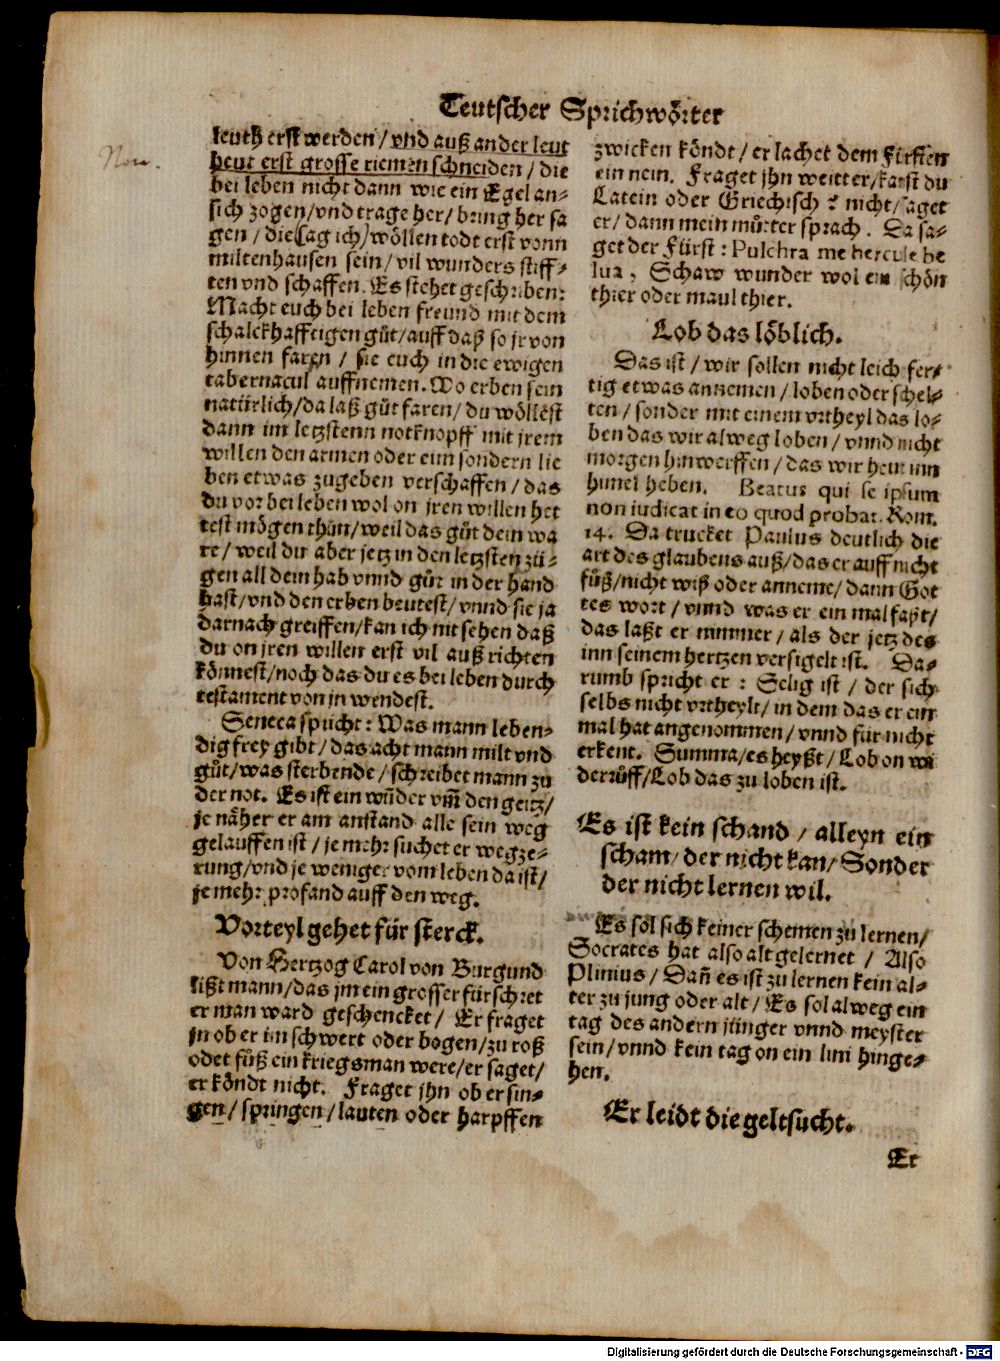 Teutscher Sprichwörter
Non.
leuth erst werden / vnd auß ander leut
heut erst grosse riemen schneiden / die
bei leben nicht dann wie ein Egel an-
sich zogen / vnd trage her / bring her sa
gen / die (sag ich) wöllen todt erst vonn
miltenhausen sein / vil wunders stiff-
ten vnd schaffen. Es stehet geschriben:
Macht euch bei leben freund mit dem
schalckhafftigen gůt / auff daß so jr von
hinnen faren / sie euch in die ewigen
tabernacul auffnemen. Wo erben sein
natürlich / da laß gůt faren / du wöllest
dann im letzstenn notknopff mit jrem
willen den armen oder eim sondern lie
ben etwas zugeben verschaffen / das
du vor bei leben wol on jren willen het
test mögen thůn / weil das gůt dein wa
re / weil du aber jetz in den letzsten zü-
gen all dein hab vnnd gůt in der hand
hast / vnd den erben beutest / vnnd sie ja
darnach greiffen / kan ich nit sehen daß
du on jren willen erst vil auß richten
könnest / noch das du es bei leben durch
testament von jn wendest.
Seneca spricht: Was mann leben-
dig frey gibt / das acht mann milt vnd
gůt / was sterbende / schreibet mann zu
der not. Es ist ein wūder vm̄ den geitz /
je näher er am anstand alle sein weg
gelauffen ist / je mehr suchet er wegze-
rung / vnd je weniger vom leben da ist /
je mehr profand auff den weg.
Vorteyl gehet für sterck.
Von Hertzog Carol von Burgund
lißt mann / das jm ein grosser fürschret
er man ward geschencket / Er fraget
jn ob er im schwert oder bogen / zu roß
odet fůß ein kriegsman were / er saget /
er köndt nicht. Fraget jhn ob er sin-
gen / springen / lauten oder harpffen
zwicken köndt / er lachet dem Fürsten
ein nein. Fraget jhn weitter / kanst du
Latein oder Griechisch? nicht / saget
er / dann mein můtter sprach. Da sa-
get der Fürst: Pulchra me hercule be
lua, Schaw wunder wol ein schön
thier oder maul thier.
Lob das löblich.
Das ist / wir sollen nicht leich fer-
tig etwas annemen / loben oder schel-
ten / sonder mit einem vrtheyl das lo-
ben das wir alweg loben / vnnd nicht
morgen hinwerffen / das wir heut inn
himel heben. Beatus qui se ipsum
non iudicat in eo quod probat. Rom.
14. Da trucket Paulus deutlich die
art des glaubens auß / das er auff nicht
fůß / nicht wiß oder anneme / dann Got
tes wort / vnnd was er ein mal faßt /
das laßt er nimmer / als der jetz des
inn seinem hertzen versigelt ist. Da-
rumb spricht er: Selig ist / der sich
selbs nicht vrtheylt / in dem das er ein
mal hat angenommen / vnnd für nicht
erkent. Summa / es heyßt / Lob on wi
derrůff / Lob das zu loben ist.
Es ist kein schand / alleyn ein
scham / der nicht kan / Sonder
der nicht lernen wil.
Es sol sich keiner schemen zu lernen /
Socrates hat also alt gelernet / Also
Plinius / Dan̄ es ist zu lernen kein al-
ter zu jung oder alt / Es sol alweg ein
tag des andern jünger vnnd meyster
sein / vnnd kein tag on ein lini hinge-
hen.
Er leidt die geltsucht.
Er
Digitalisierung gefördert durch die Deutsche Forschungsgemeinschaft - DFG